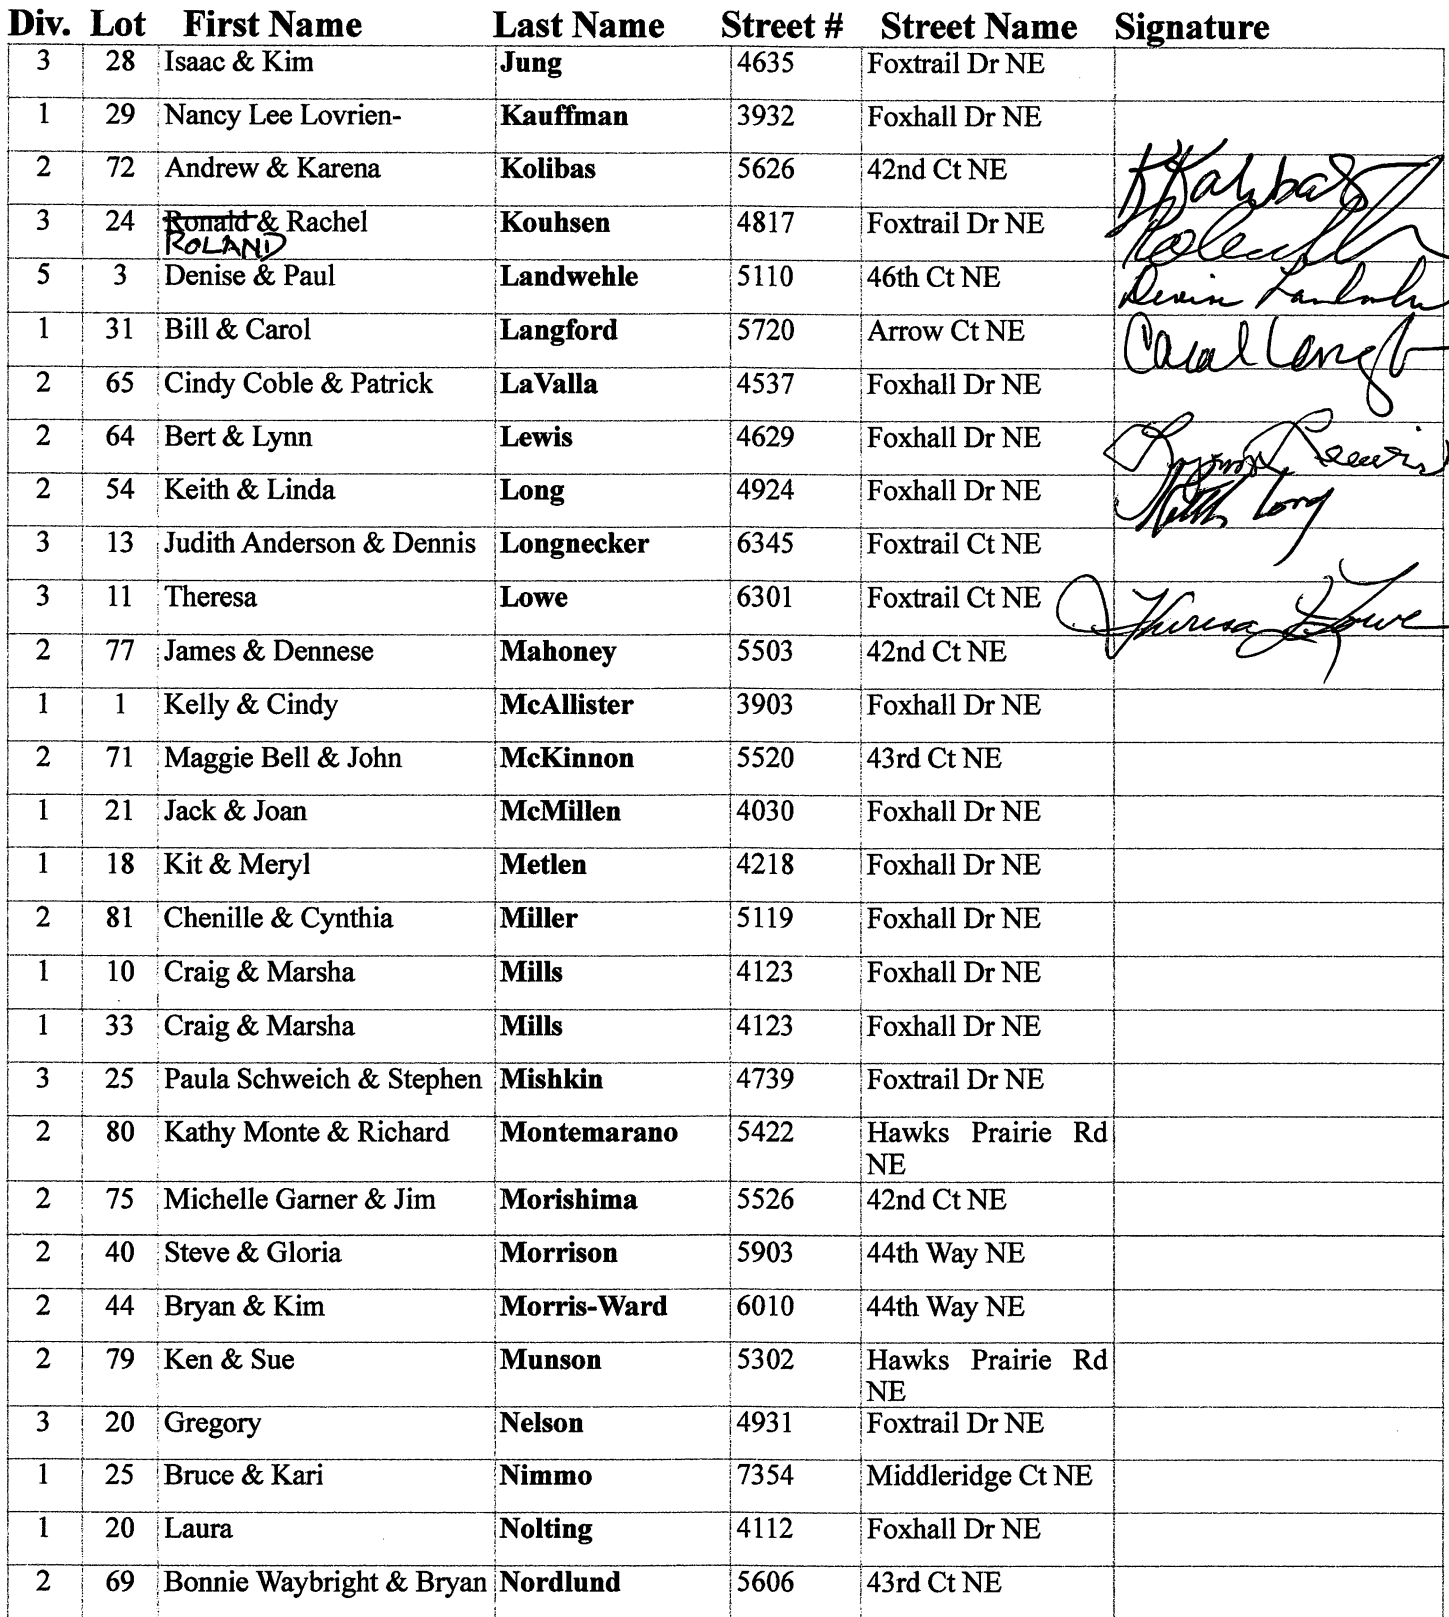 Div. Lot First Name Last Name Street # Street Name Signature
3 28 Isaac & Kim Jung 4635 Foxtrail Dr NE
1 29 Nancy Lee Lovrien- Kauffman 3932 Foxhall Dr NE
2 72 Andrew & Karena Kolibas 5626 42nd Ct NE K Kolibas
3 24 Ronald & Rachel Kouhsen 4817 Foxtrail Dr NE
ROLAND
5 3 Denise & Paul Landwehle 5110 46th Ct NE
1 31 Bill & Carol Langford 5720 Arrow Ct NE Carol Langf
2 65 Cindy Coble & Patrick LaValla 4537 Foxhall Dr NE
2 64 Bert & Lynn Lewis 4629 Foxhall Dr NE Lewis
2 54 Keith & Linda Long 4924 Foxhall Dr NE Keith Long
3 13 Judith Anderson & Dennis Longnecker 6345 Foxtrail Ct NE
3 11 Theresa Lowe 6301 Foxtrail Ct NE Theresa Lowe
2 77 James & Dennese Mahoney 5503 42nd Ct NE
1 1 Kelly & Cindy McAllister 3903 Foxhall Dr NE
2 71 Maggie Bell & John McKinnon 5520 43rd Ct NE
1 21 Jack & Joan McMillen 4030 Foxhall Dr NE
1 18 Kit & Meryl Metlen 4218 Foxhall Dr NE
2 81 Chenille & Cynthia Miller 5119 Foxhall Dr NE
1 10 Craig & Marsha Mills 4123 Foxhall Dr NE
1 33 Craig & Marsha Mills 4123 Foxhall Dr NE
3 25 Paula Schweich & Stephen Mishkin 4739 Foxtrail Dr NE
2 80 Kathy Monte & Richard Montemarano 5422 Hawks Prairie Rd
NE
2 75 Michelle Garner & Jim Morishima 5526 42nd Ct NE
2 40 Steve & Gloria Morrison 5903 44th Way NE
2 44 Bryan & Kim Morris-Ward 6010 44th Way NE
2 79 Ken & Sue Munson 5302 Hawks Prairie Rd
NE
3 20 Gregory Nelson 4931 Foxtrail Dr NE
1 25 Bruce & Kari Nimmo 7354 Middleridge Ct NE
1 20 Laura Nolting 4112 Foxhall Dr NE
2 69 Bonnie Waybright & Bryan Nordlund 5606 43rd Ct NE